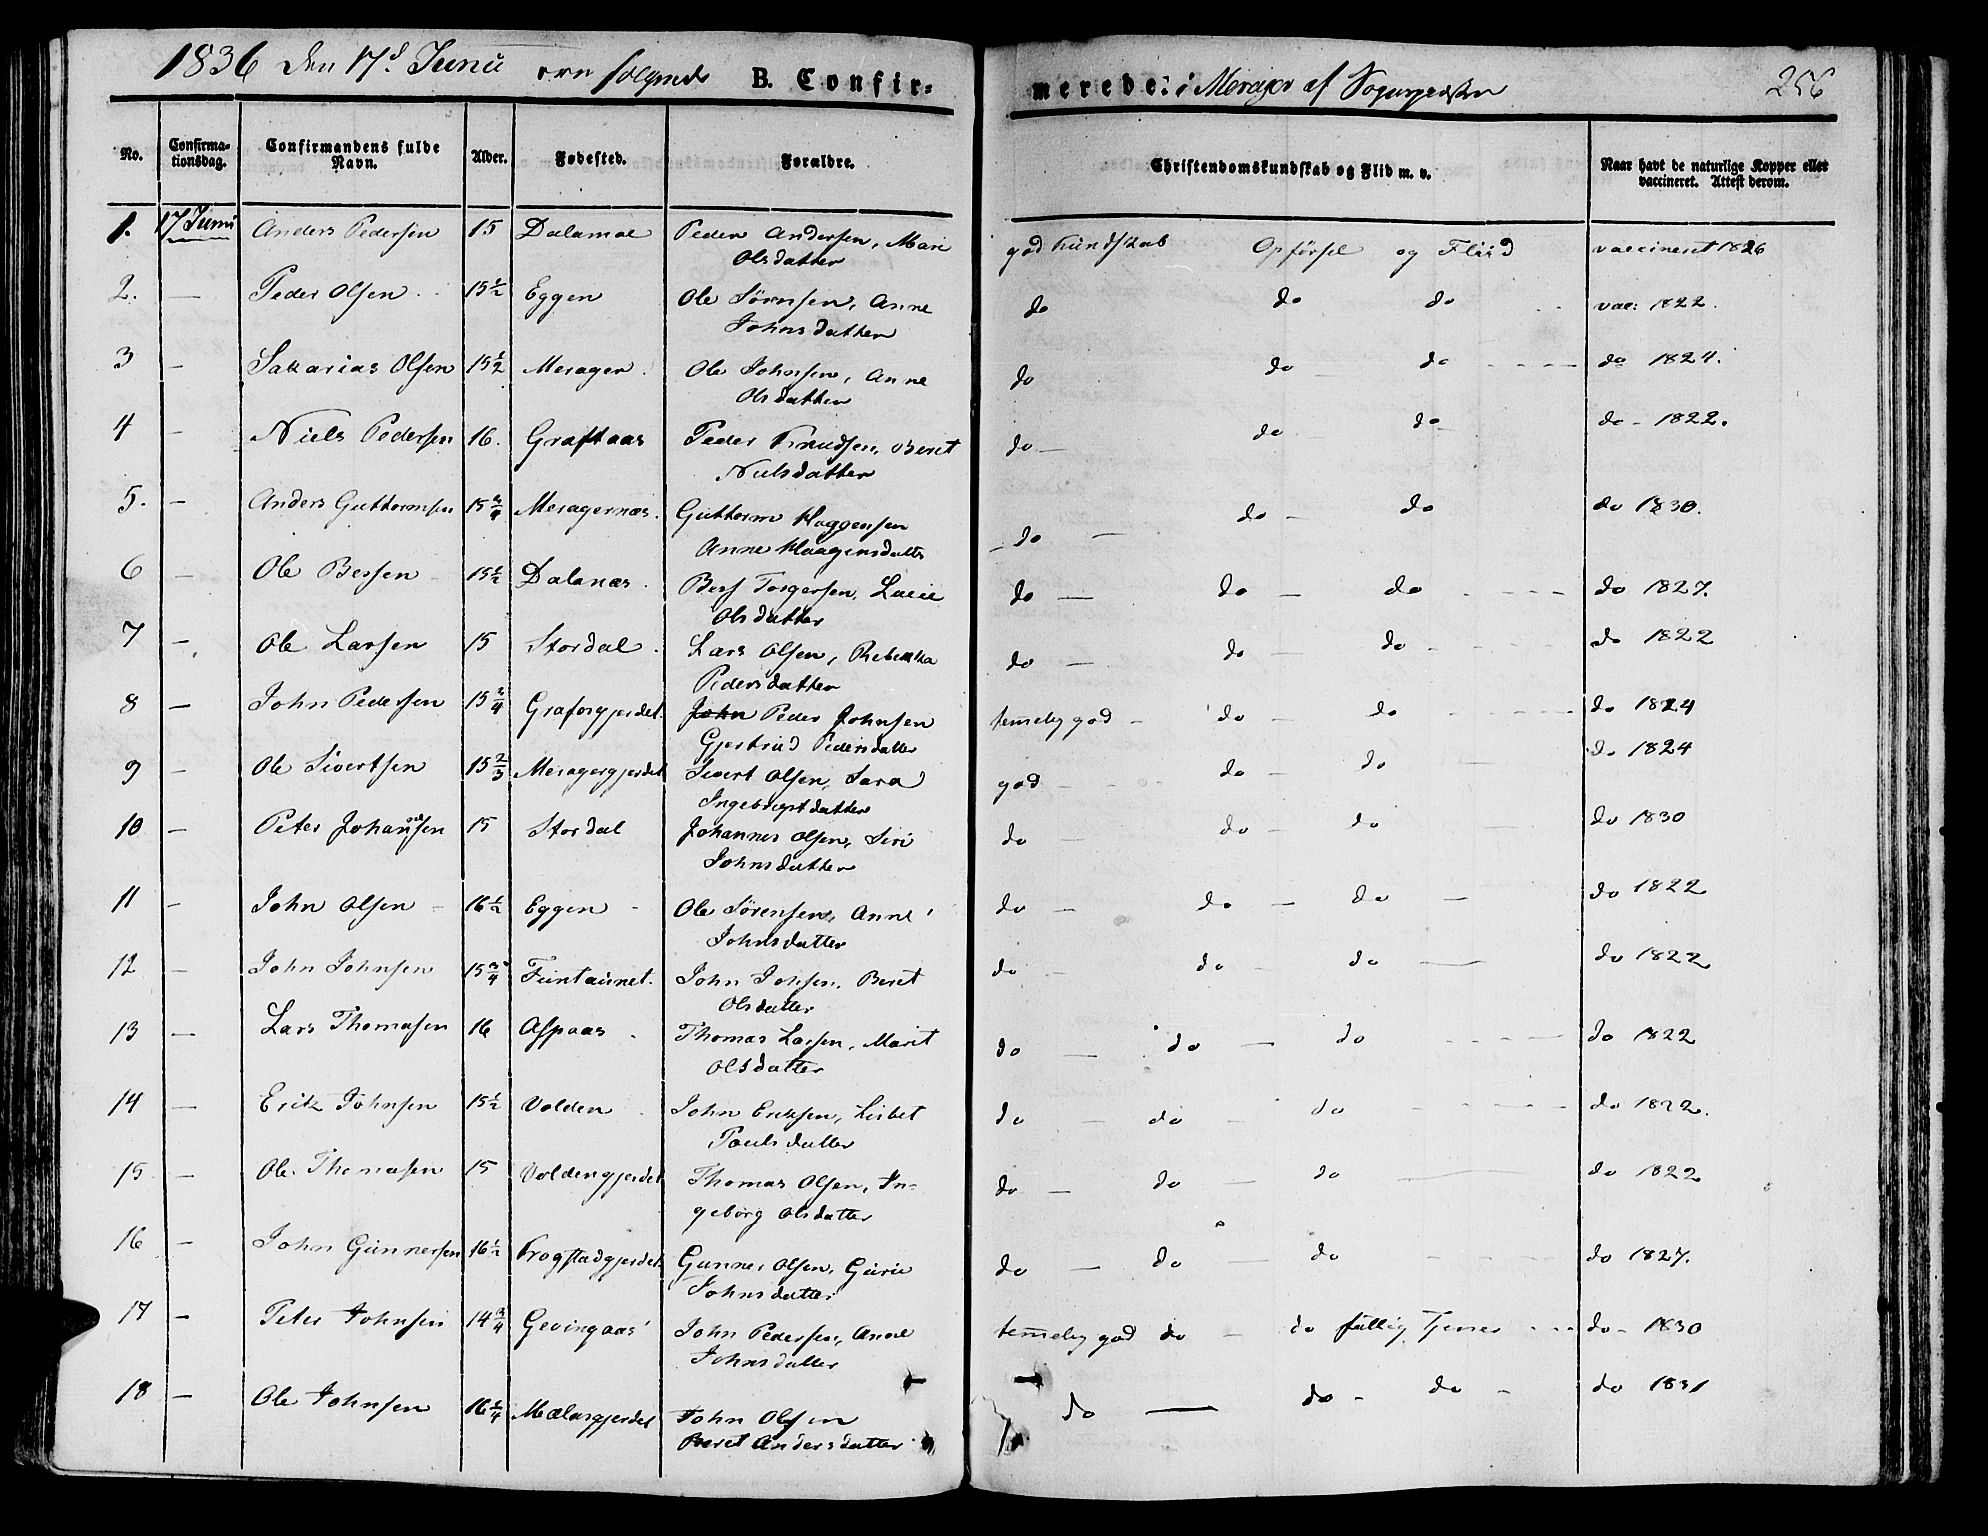 1836 den 17d Junii ere følgende B. Confir-
merede: i Merager af Sognepræsten
256
No. Confirma-tionsdag. Confirmandens fulde Navn. Alder. Fødested. Forældre. Christendomskundskab og Flid m. v. Naar havt de naturlige Kopper eller vaccineret. Attest derom.
1. 17 Junii Anders Pedersen 15 Dalamoe Peder Andersen, Mari god Kundskab Opførsel og Fliid vaccineret 1826
Olsdatter
2. — Peder Olsen 15 1/2 Eggen Ole Sørnsen, Anne do do do vac: 1822.
Johnsdatter
3 — Sakarias Olsen 15 1/2 Merager Ole Johnsen, Anne do do do do 1824.
Olsdatter
4 — Niels Pedersen 16. Graftaas Peder Knudsen, Beret do do do do 1822.
Nielsdatter
5. — Anders Guttormsen 15 3/4 Meragernæs. Guttorm Haggensen do do do do 1830.
Anne Haagensdatter
6 — Ole Bersen 15 1/2 Dalanæs Bers Torgersen, Lucie do do do do 1827.
Olsdatter
7 — Ole Larsen 15 Stordal Lars Olsen, Rebekka do do do do 1822
Pedersdatter
8 — John Pedersen 15 3/4 Graforgjerdet. John Peder Johnsen temelig god do do do 1824
Gjertrud Pedersdatter
9 — Ole Sivertsen 15 2/3 Meragergjerdet Sivert Olsen, Sara god do do do 1824
Ingebrigtdatter
10 — Peter Johansen 15 Stordal Johannes Olsen, Siri do do do do 1830
Johnsdatter
11 — John Olsen 16 1/2 Eggen Ole Sørensen, Anne do do do do 1822
Johnsdatter
12 — John Johnsen 15 3/4 Funtaunet. John Johsen, Beret do do do do 1822
Olsdatter
13 — Lars Thomasen 16 Aspaas Thomas Larsen, Marit do do do do 1822
Olsdatter
14 — Erik Johnsen 15 1/2 Volden John Eriksen, Lisbet do do do do 1822.
Paulsdatter
15 — Ole Thomasen 15 Voldengjerdet Thomas Olsen, In- do do do do 1822
geborg Olsdatter
16 — John Gunnersen 16 1/2 Krogstadgjerdet Gunner Olsen, Guru do do do do 1827.
Johnsdatter
17 — Peter Johnsen 14 3/4 Gevingaas John Pedersen, Anne temelig god do do fattig Tjener do 1830
Johnsdatter
18 — Ole Johnsen 16 1/4 Mælasgjerdet John Olsen do do do do 1831
Beret Andersdatter